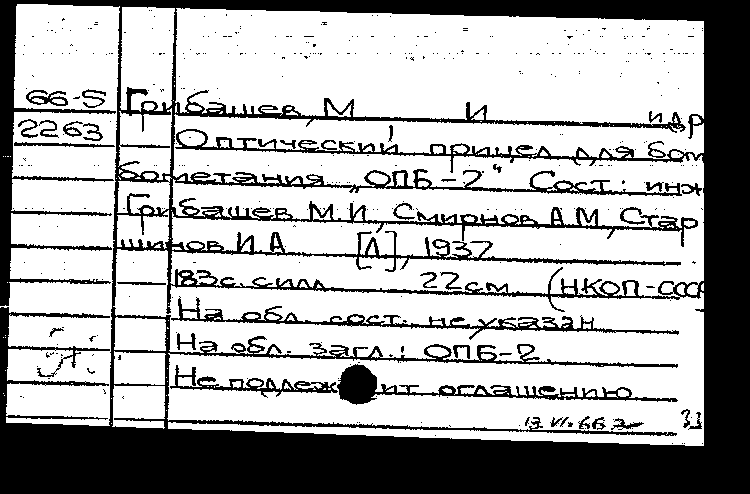 66-5 Грибашев, М И идр
2263 Оптический прицел для бом
бометания „ОПБ-2" Сост.: инж
Грибашев М.И., Смирнов А.М, Стар
шинов И.А [Л], 1937
183с. силл 22см (НКОП-СССР
На обл. сост. не указан
На обл. загл.: ОПБ-2.
Не подлежит оглашению
13.VI.66